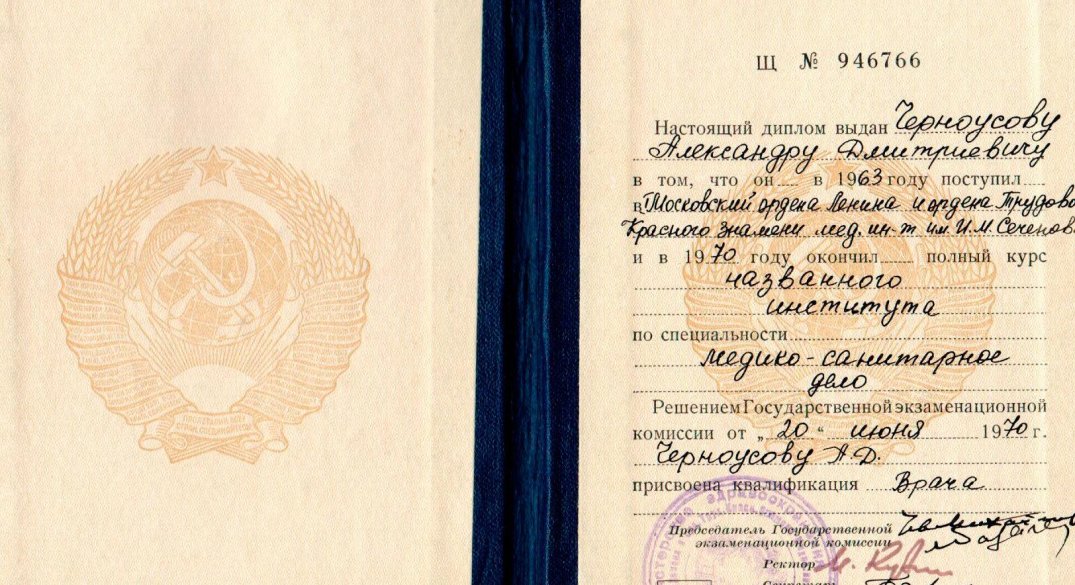 Щ № 946766
Настоящий диплом выдан Черноусову
Александру Дмитриевичу
в том, что он в 1963 году поступил
в Московский ордена Ленина и ордена Трудово
Красного Знамени мед. ин-т им. И.М. Сеченова
и в 1970 году окончил полный курс
названного
института
по специальности
медико-санитарное
дело
Решением Государственной экзаменационной
комиссии от „20“ июня 1970 г.
Черноусову А.Д.
присвоена квалификация Врача
Председатель Государственной
экзаменационной комиссии
Ректор
Секретарь